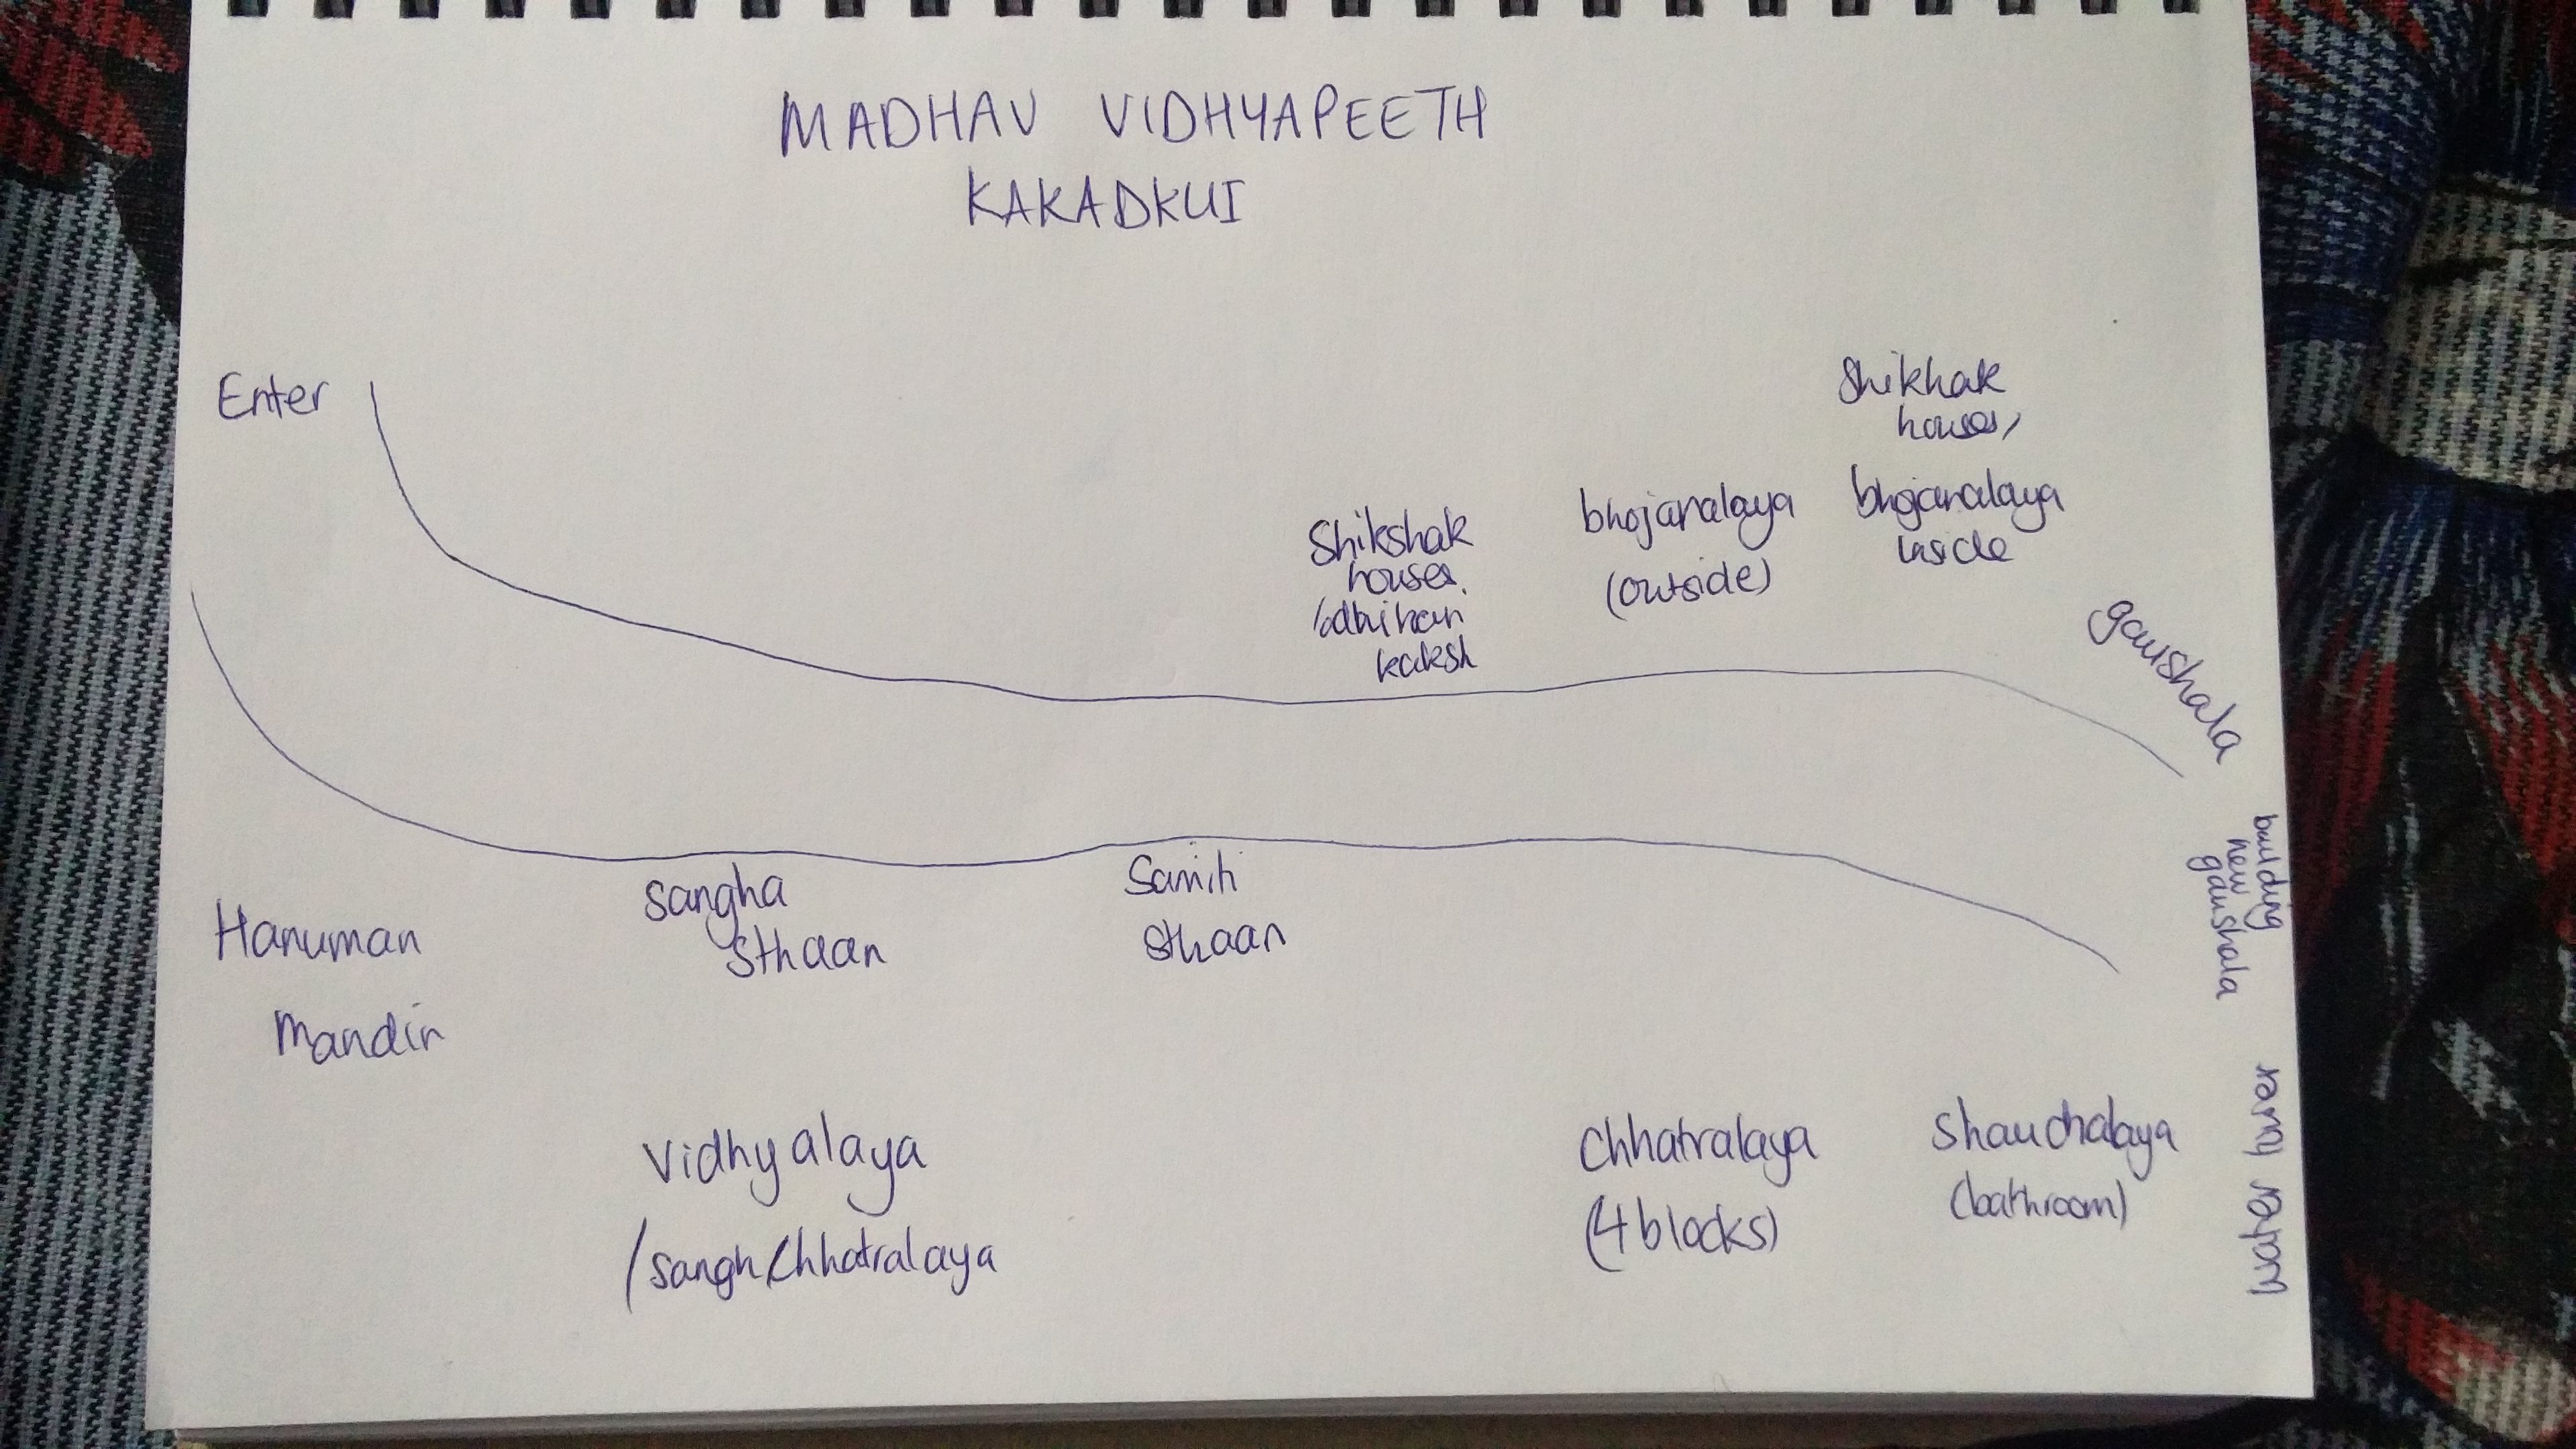 MADHAV VIDHYAPEETH
KAKADKUI
Enter
Shikshak
houses
kaksh
bhojanalaya
(outside)
Shikhak
houses,
bhojanalaya
inside
gaushala
building
new
gaushala
water tower
Hanuman
Mandir
Sangha
Sthaan
Samiti
Sthaan
Vidhyalaya
/Sangh Chhatralaya
Chhatralaya
(4 blocks)
Shauchalaya
(bathroom)